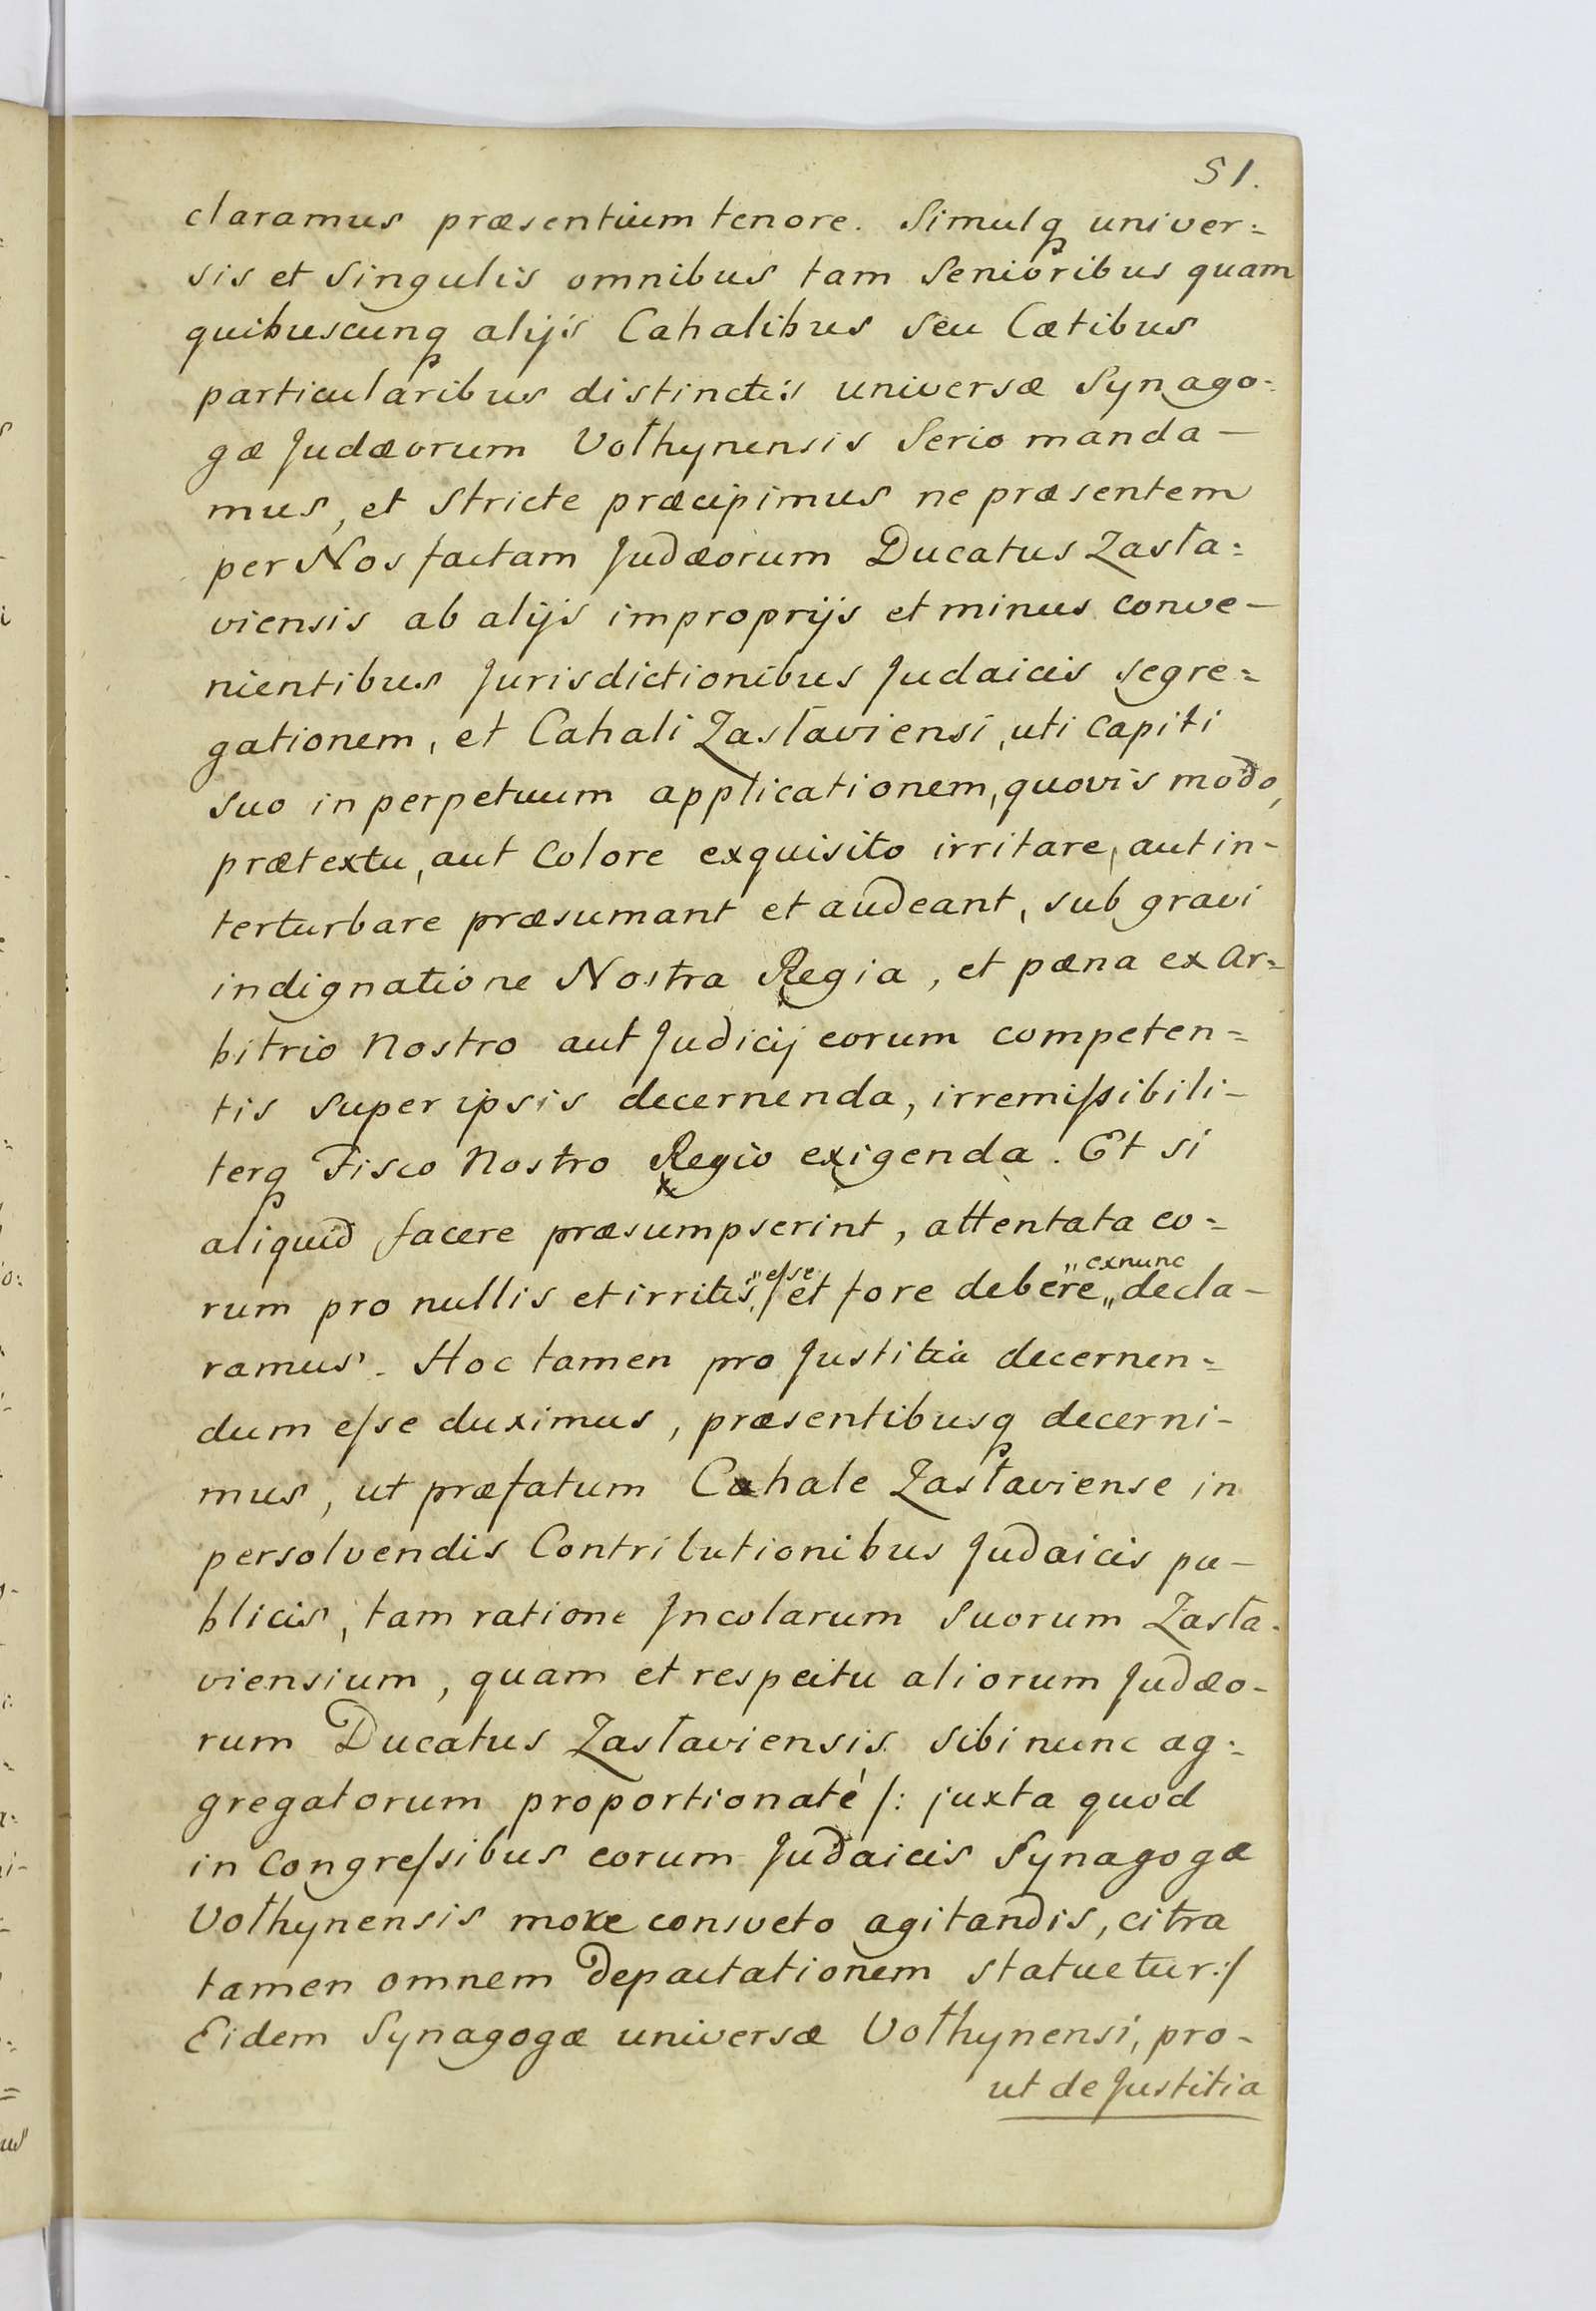 51.
claramus præsentium tenore. Simulq univer=
sis et Singulis omnibus tam Senioribus quam
quibuscunq alijs Cahalibus seu Cœtibus
particularibus distinctis universæ Synago=
gæ Judæorum Volhynensis Serio manda–
mus, et Stricte præcipimus ne præsentem
per Nos factam Judæorum Ducatus Zasła=
viensis ab alijs improprijs et minus conve–
nientibus Jurisdictionibus Judaicis segre=
gationem, et Cahali Zasłaviensi, uti Capiti
suo in perpetuum applicationem, quovis modo,
prætextu, aut Colore exquisito irritare, aut in-
terturbare præsumant et audeant, sub gravi
indignatione Nostra Regia, et pœna ex Ar=
bitrio Nostro aut Judicij eorum competen=
tis super ipsis decernenda, irremiſsibili–
terq Fisco Nostro Regio exigenda. Et si
aliquid facere præsumpserint, attentata eo=
rum pro nullis et irritis „eſse et fore debere „exnunc„ decla–
ramus. Hoc tamen pro Justitia decernen=
dum eſse duximus, præsentibusq decerni–
mus, ut præfatum Cahale Zasłaviense in
persolvendis Contributionibus Judaicis pu–
blicis, tam ratione Incolarum suorum Zasła-
viensium, quam et respectu aliorum Judæo-
rum Ducatus Zasłaviensis sibi nunc ag=
gregatorum proportionaté /: juxta quod
in Congreſsibus eorum Judaicis Synagogæ
Volhynensis more consueto agitandis, citra
tamen omnem depactationem statuetur:/
Eidem Synagogæ universæ Volhynensi, pro-
ut de Justitia